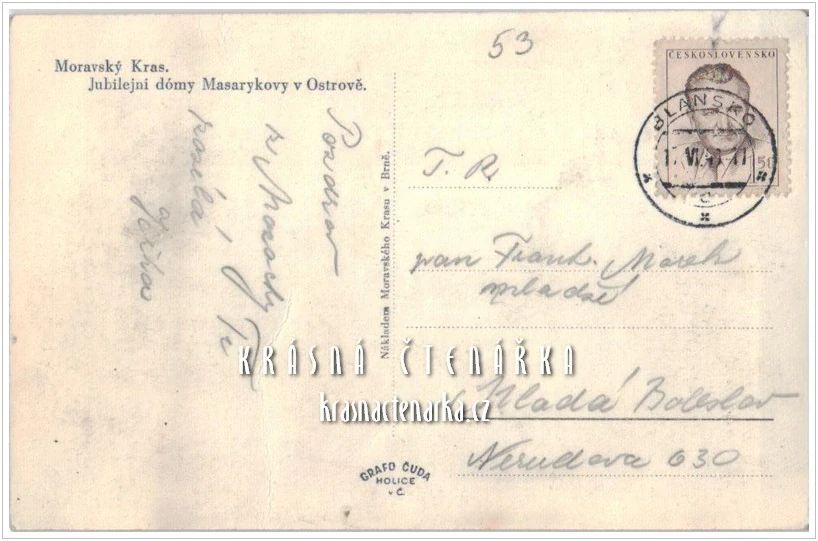 53
Moravský Kras.
Jubilejní dómy Masarykovy v Ostrově.
ČESKOSLOVENSKO
BLANSKO
Pozdrav
z
posílá Ti
Nákladem Moravského Krasu v Brně.
T. R.
pan Frant. Marek
mladší
KRÁSNÁ ČTENÁŘKA
krasnactenarka.cz
Mladá Boleslav
Nerudova 630
GRAFO ČUDA
HOLICE
v Č.